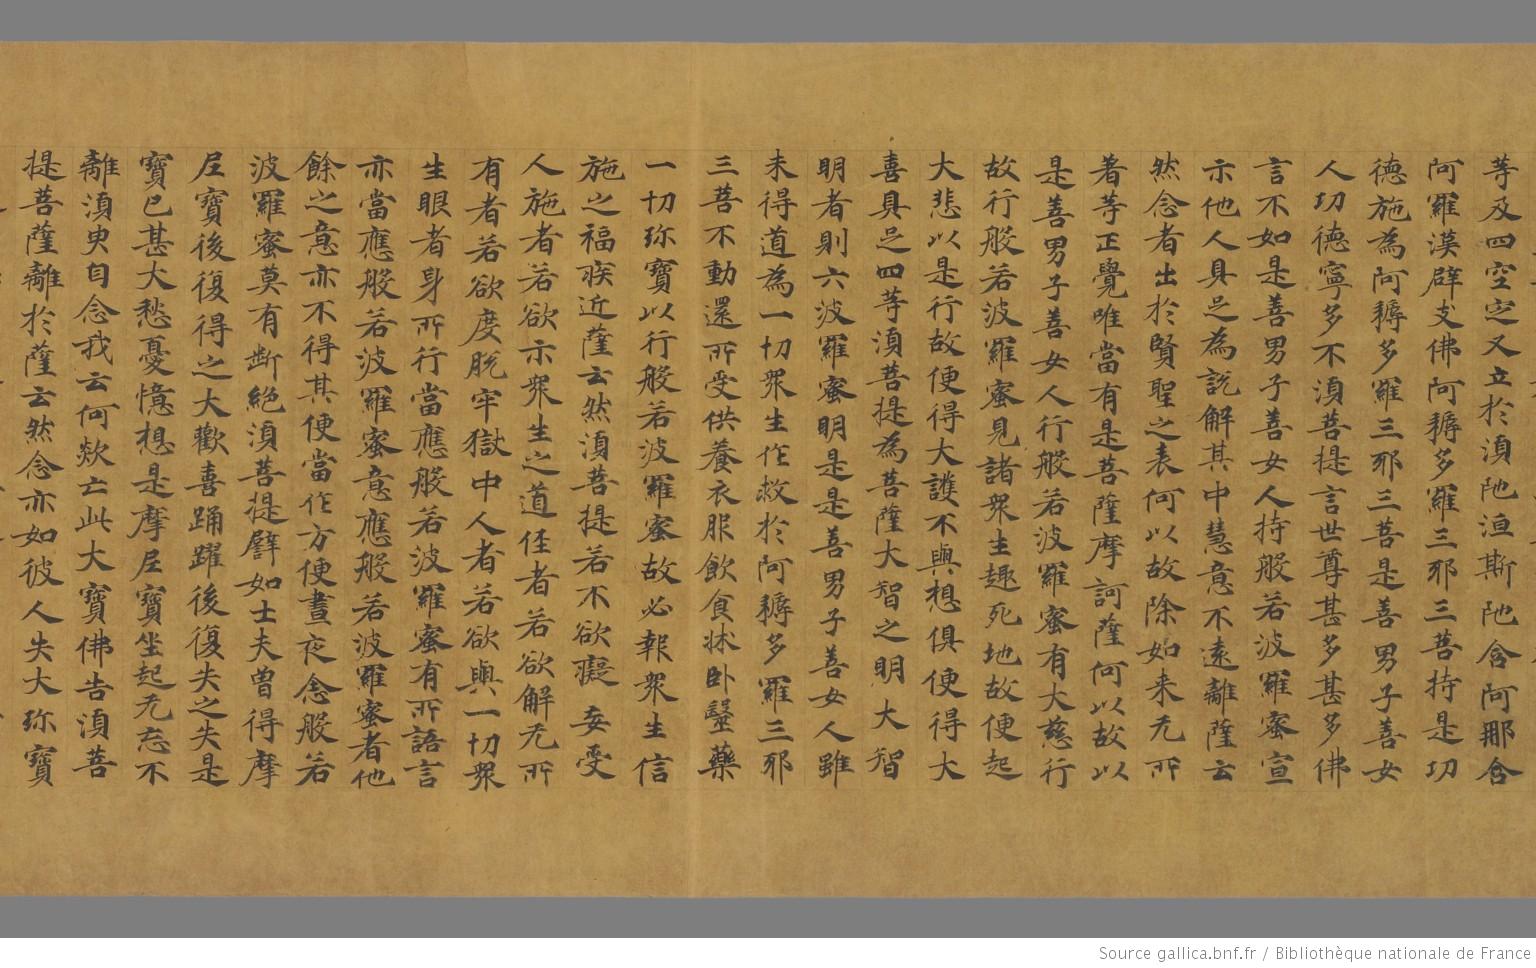 等及四空定又立於湏阤洹斯阤含阿那含
阿羅漢辟支佛阿耨多羅三耶三菩持是功
德施為阿耨多羅三耶三菩是善男子善女
人功德寧多不湏菩提言世尊甚多甚多佛
言不如是善男子善女人持般若波羅蜜宣
示他人具足為説解其中慧意不遠離薩云
然念者出於賢聖之表何以故除如来无所
著等正覺唯當有是菩薩摩訶薩何以故以
是善男子善女人行般若波羅蜜有大慈行
故行般若波羅蜜見諸衆生趣死地故便起
大悲以是行故便得大護不與想俱便得大
喜具足四等湏菩提為菩薩大智之明大智
明者則六波羅蜜明是是善男子善女人雖
未得道為一切衆生作救於阿耨多羅三耶
三菩不動還所受供養衣服飲食牀卧醫藥
一切珎寶以行般若波羅蜜故必報衆生信
施之福疾近薩云然湏菩提若不欲癡妄受
人施者若欲示衆生之道俓者若欲解无所
有者若欲度脱牢獄中人者若欲與一切衆
生眼者身所行當應般若波羅蜜有所語言
亦當應般若波羅蜜意應般若波羅蜜者他
餘之意亦不得其便當作方便晝夜念般若
波羅蜜莫有斷絶湏菩提譬如士夫曽得摩
尼寶後復得之大歡喜踊躍後復失之失是
寶已甚大愁憂憶想是摩尼寶坐起无忘不
離湏臾自念我云何欻亡此大寶佛告湏菩
提菩薩離於薩云然念亦如彼人失大珎寶